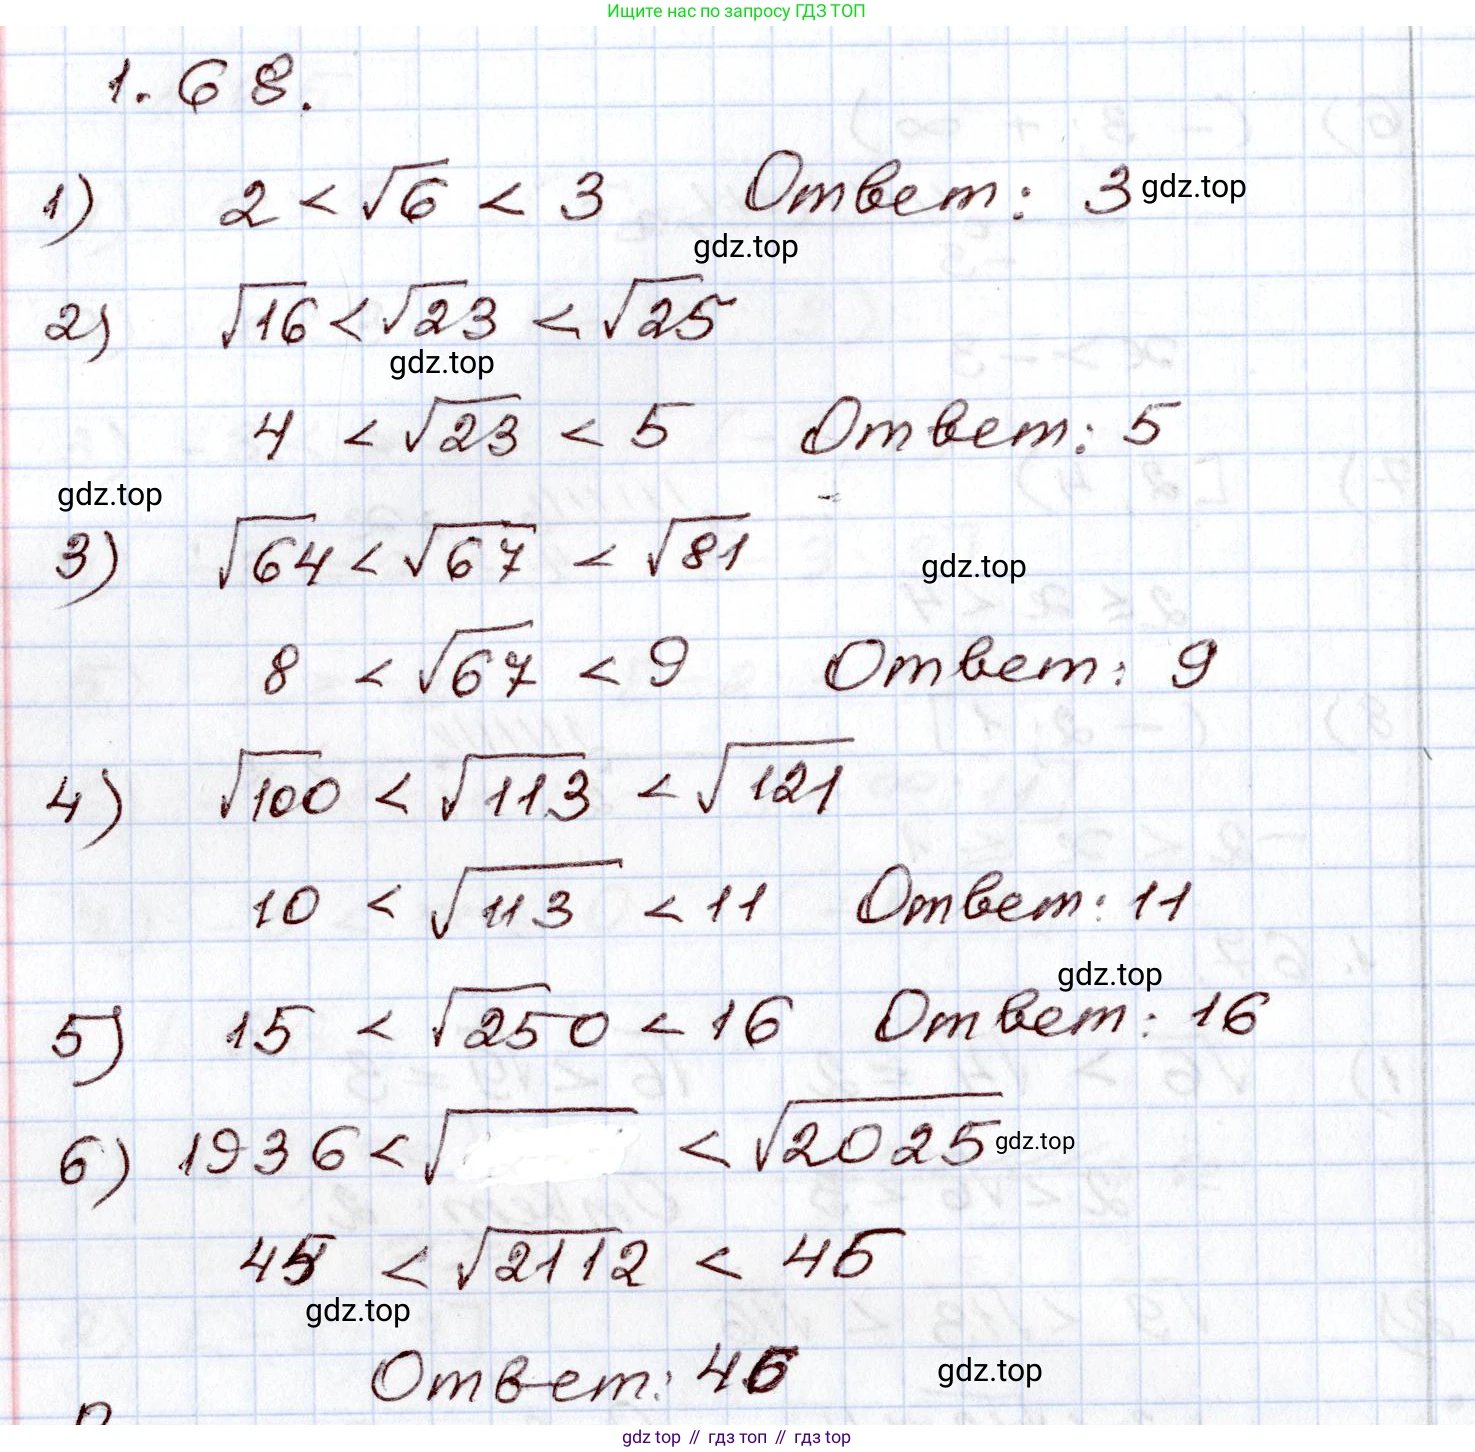 Ищите нас по запросу ГДЗ ТОП
1.68.
1) 2 < √6 < 3 Ответ: 3 gdz.top
gdz.top
2) √16 < √23 < √25
gdz.top
4 < √23 < 5 Ответ: 5
gdz.top
3) √64 < √67 < √81
gdz.top
8 < √67 < 9 Ответ: 9
4) √100 < √113 < √121
10 < √113 < 11 Ответ: 11
gdz.top
5) 15 < √250 < 16 Ответ: 16
6) 1936 < √ < √2025 gdz.top
< √2112 < 45
gdz.top
Ответ: 46 gdz.top
gdz топ // гдз топ // гдз top